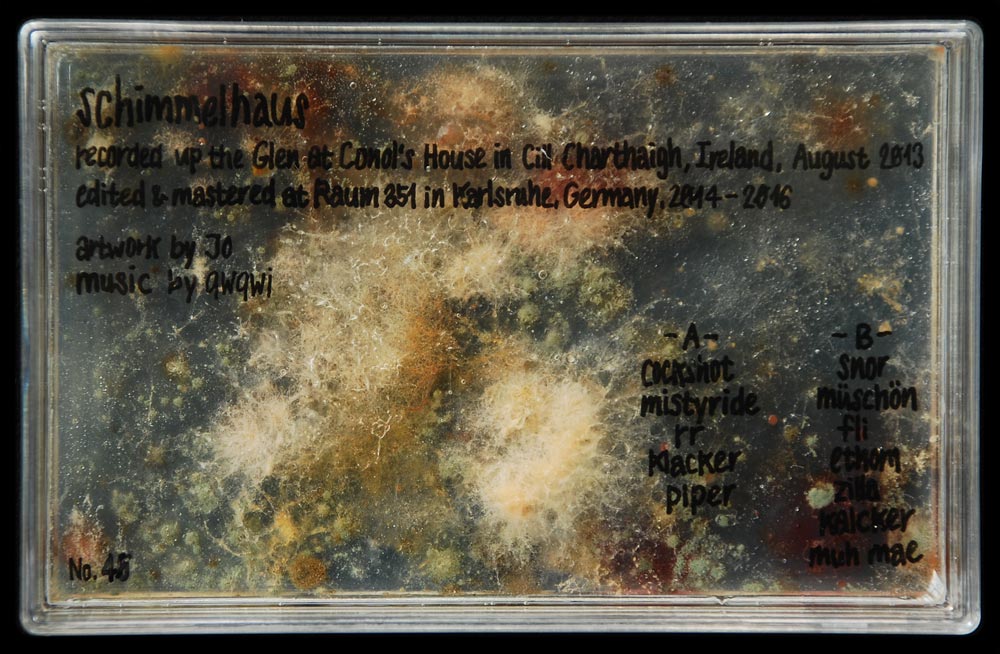 schimmelhaus
recorded up the Glen at Conol's House in Cill Charthaigh, Ireland, August 2013
edited & mastered at Raum 351 in Karlsruhe, Germany, 2014-2016
artwork by Jo
music by qwqwi
-A-
cockshot
mistyride
rr
klacker
piper
-B-
snor
müschön
fli
ethorn
zilla
kalcker
muh mae
No. 45